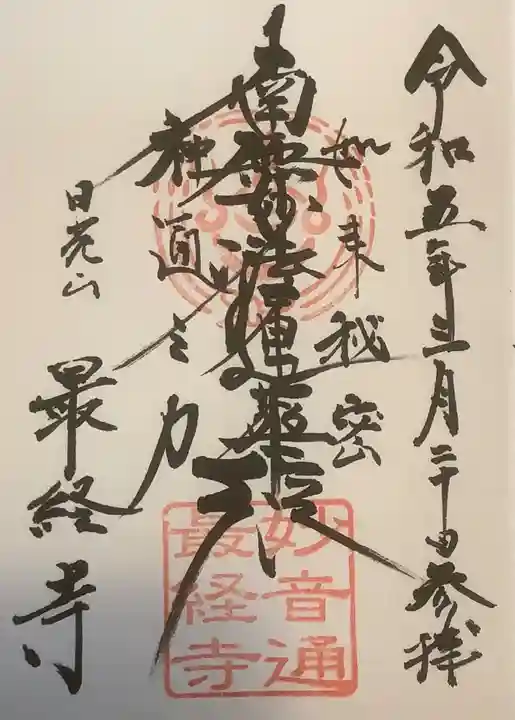 令和五年三月二十日参拝
如来秘密
南無妙法蓮華経
神通之力
日光山
最経寺
妙音通
最経寺